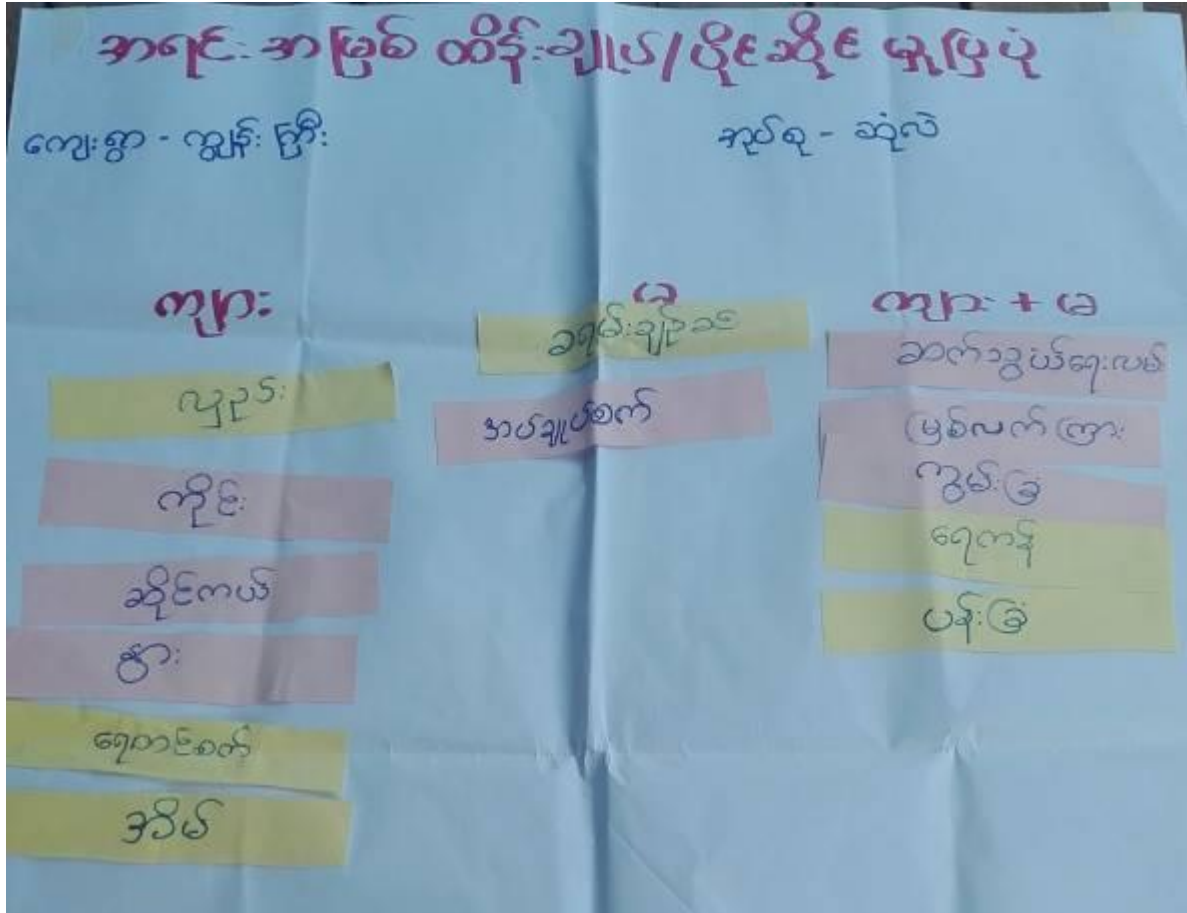 အရင်းအမြစ် ထိန်းချုပ်/ပိုင်ဆိုင် မှုပြပုံ
ကျေးရွာ - ကျွန်းကြီး
အုပ်စု - ဆုံလဲ
ကျား
လှည်း
ကိုင်း
ဆိုင်ကယ်
နွား
ရေတင်စက်
အိမ်
မ
ခရမ်းချဉ်ခင်း
အပ်ချုပ်စက်
ကျား + မ
ဆက်သွယ်ရေးလမ်း
မြစ်လက်ကြား
ကွမ်းခြံ
ရေကန်
ပန်းခြံ